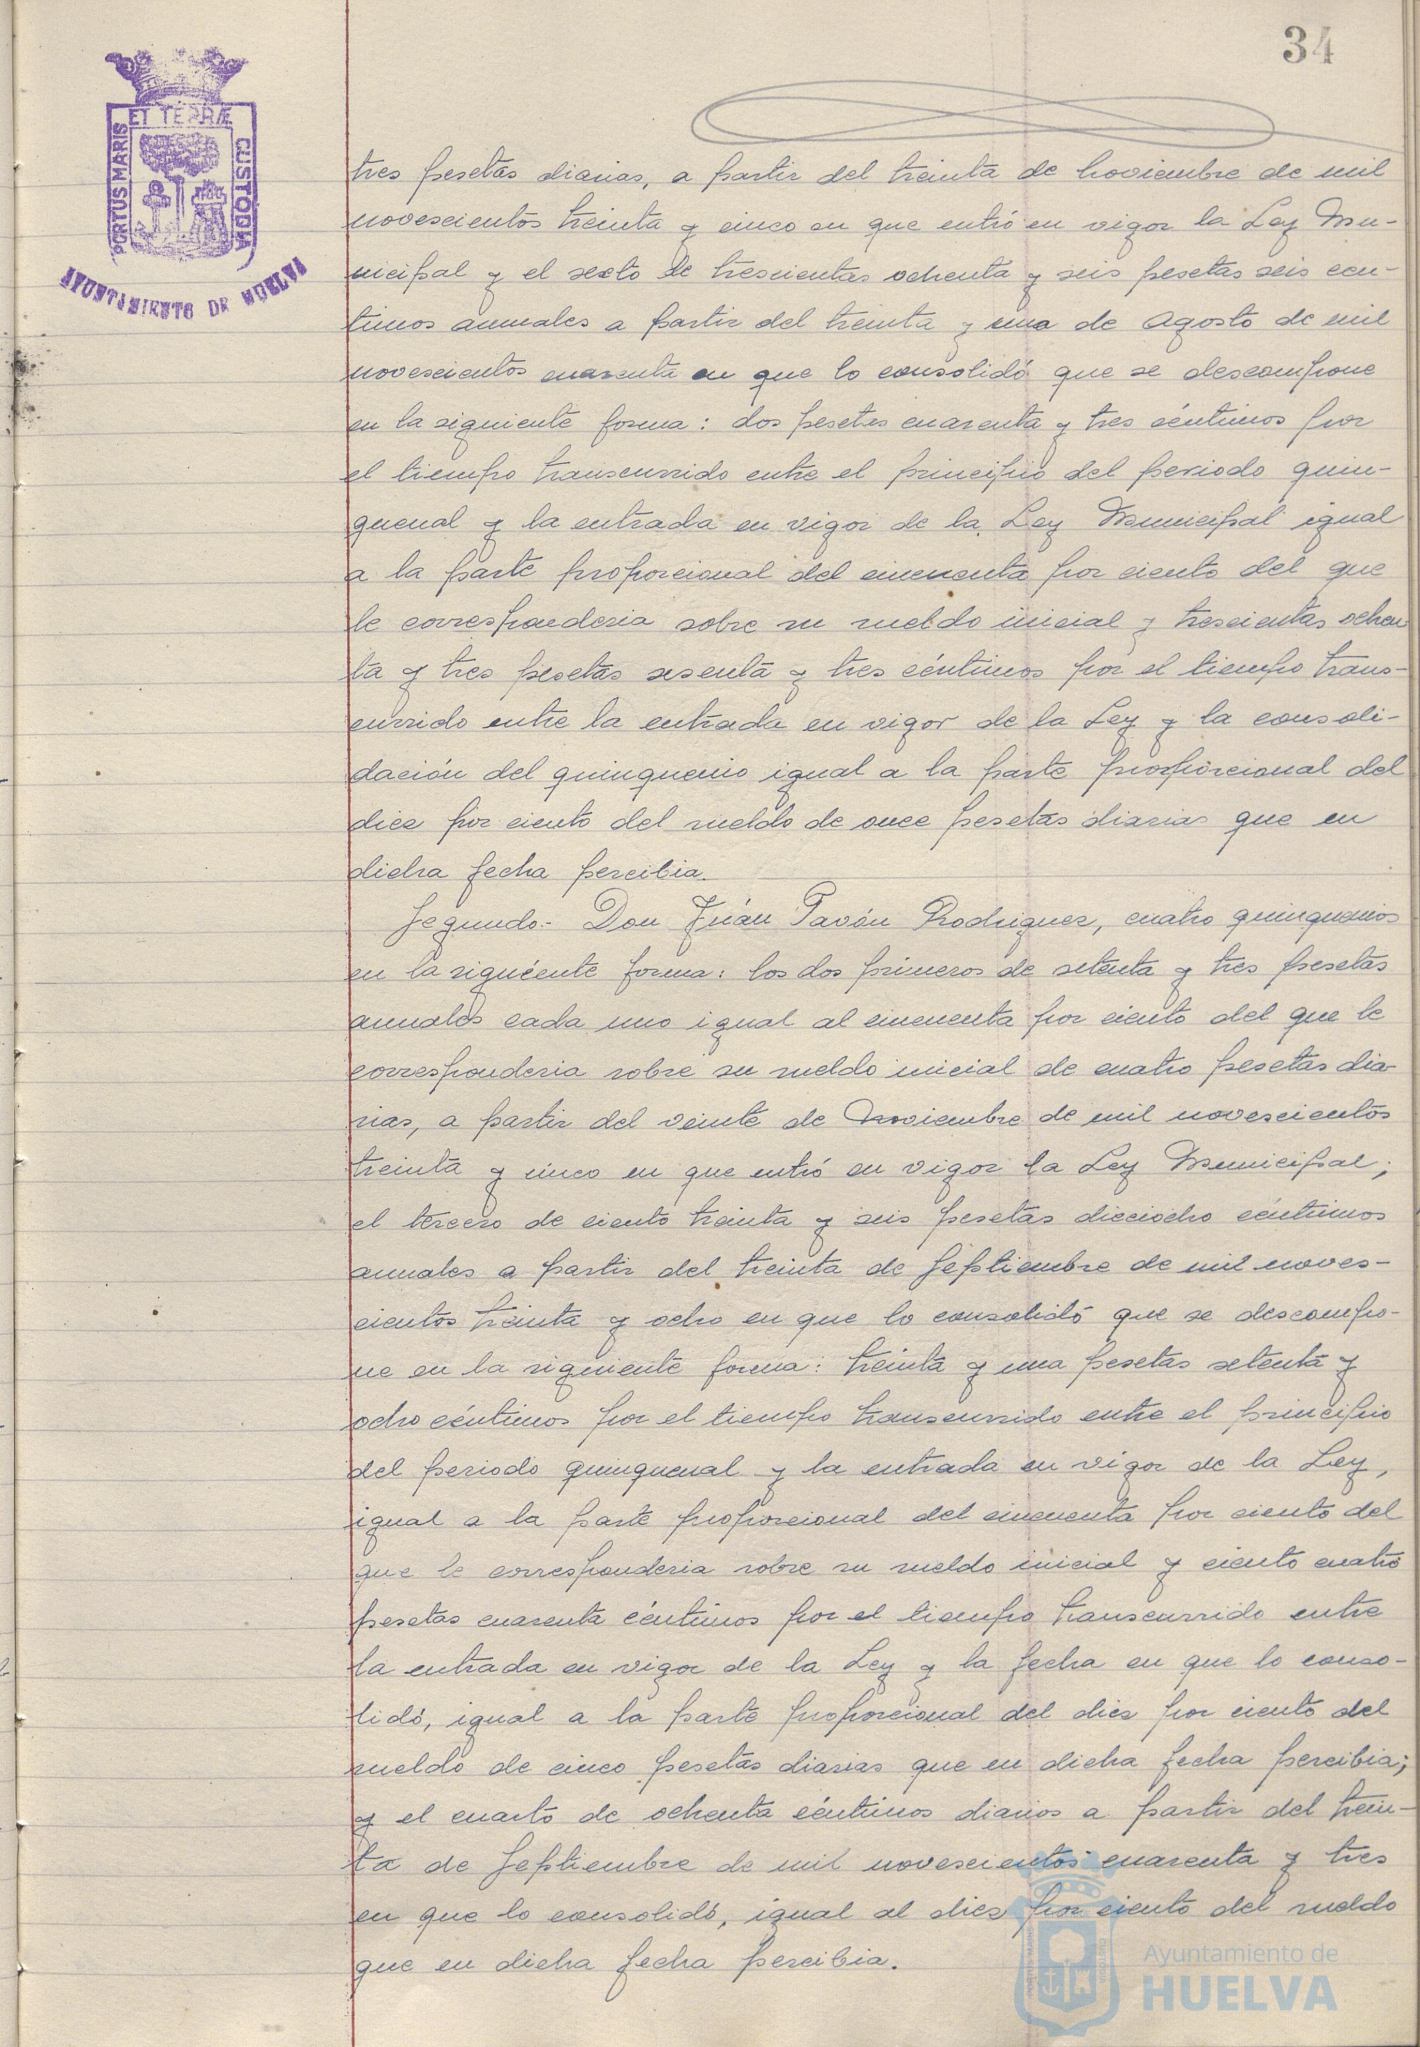 34
PORTUS MARIS ET TERRÆ CUSTODIA
AYUNTAMIENTO DE HUELVA
tres pesetas diarias, a partir del treinta de Noviembre de mil
novescientos treinta y cinco en que entró en vigor la Ley Mu-
nicipal y el sexto de trescientas ochenta y seis pesetas seis cen-
timos anuales a partir del treinta y uno de Agosto de mil
novescientos cuarenta en que lo consolidó que se descompone
en la siguiente forma: dos pesetas cuarenta y tres céntimos por
el tiempo transcurrido entre el principio del periodo quin-
quenal y la entrada en vigor de la Ley Municipal igual
a la parte proporcional del cincuenta por ciento del que
le corresponderia sobre su sueldo inicial y trescientas ochen
ta y tres pesetas sesenta y tres céntimos por el tiempo trans-
currido entre la entrada en vigor de la Ley y la consoli-
dación del quinquenio igual a la parte proporcional del
diez por ciento del sueldo de once pesetas diarias que en
dicha fecha percibia.
Segundo.- Don Juan Pavón Rodriguez, cuatro quinquenios
en la siguiente forma: los dos primeros de setenta y tres pesetas
anuales cada uno igual al cincuenta por ciento del que le
corresponderia sobre su sueldo inicial de cuatro pesetas dia-
rias, a partir del veinte de Noviembre de mil novescientos
treinta y cinco en que entró en vigor la Ley Municipal;
el tercero de ciento treinta y seis pesetas dieciocho céntimos
anuales a partir del treinta de Septiembre de mil noves-
cientos treinta y ocho en que lo consolidó que se descompo-
ne en la siguiente forma: treinta y una pesetas setenta y
ocho céntimos por el tiempo transcurrido entre el principio
del periodo quinquenal y la entrada en vigor de la Ley,
igual a la parte proporcional del cincuenta por ciento del
que le corresponderia sobre su sueldo inicial y ciento cuatro
pesetas cuarenta céntimos por el tiempo transcurrido entre
la entrada en vigor de la Ley y la fecha en que lo conso-
lidó, igual a la parte proporcional del diez por ciento del
sueldo de cinco pesetas diarias que en dicha fecha percibia;
y el cuarto de ochenta céntimos diarios a partir del trein-
ta de Septiembre de mil novescientos cuarenta y tres
en que lo consolidó, igual al diez por ciento del sueldo
que en dicha fecha percibia.
Ayuntamiento de
HUELVA